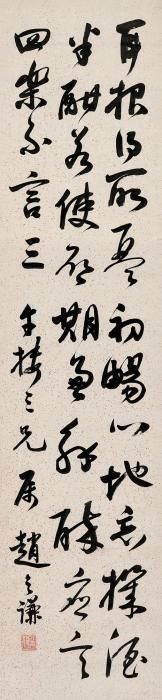 耳根得所琴初暢心地忘機酒
半酣若使啟期兼解醉應言
四樂不言三 午樓三兄屬 趙之謙